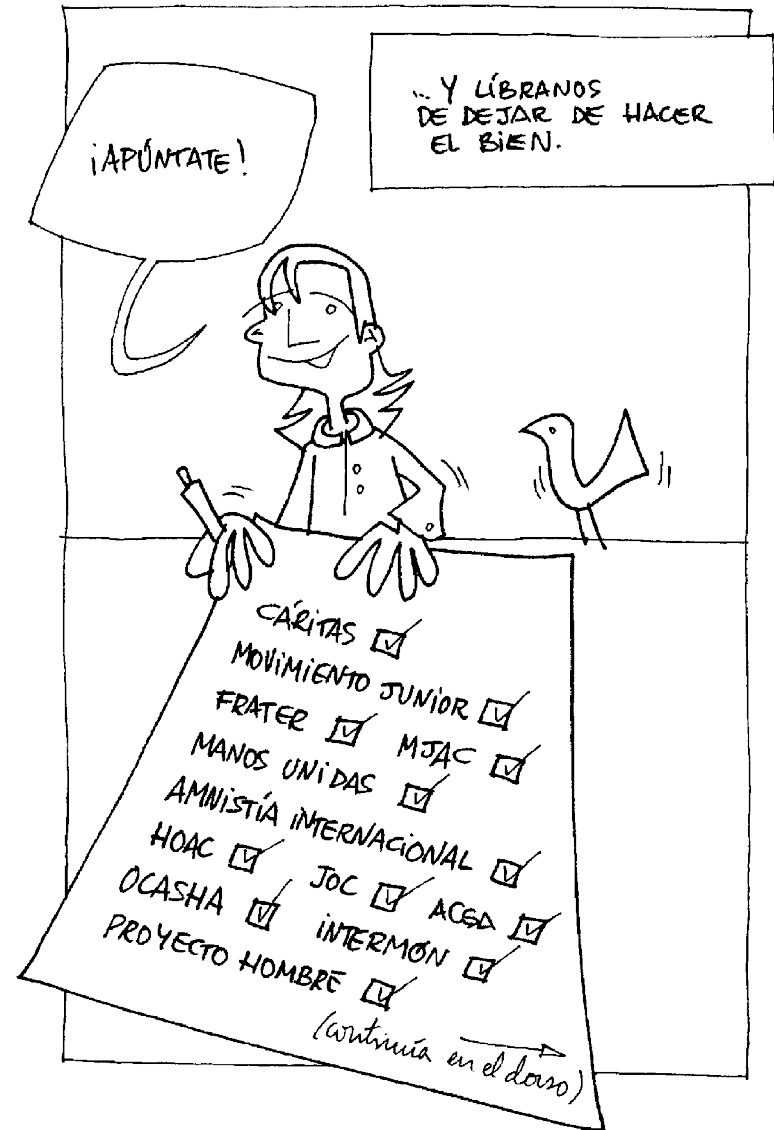 ¡APÚNTATE!
... Y LÍBRANOS
DE DEJAR DE HACER
EL BIEN.
CÁRITAS
MOVIMIENTO JUNIOR
FRATER MJAC
MANOS UNIDAS
AMNISTÍA INTERNACIONAL
HOAC JOC ACGD
OCASHA INTERMÓN
PROYECTO HOMBRE
(continúa en el dorso)